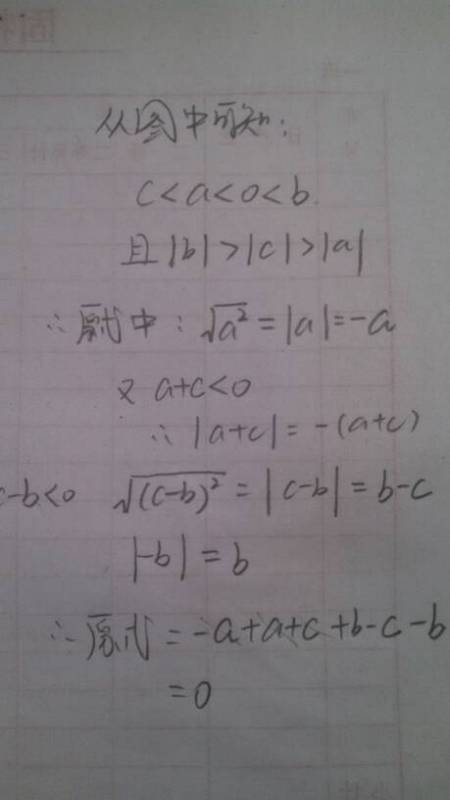 从图中可知:
c<a<0<b
且|b|>|c|>|a|
∴原式中:√a²=|a|=-a
又 a+c<0
∴|a+c|=-(a+c)
c-b<0 √(c-b)²=|c-b|=b-c
|-b|=b
∴原式=-a+a+c+b-c-b
=0